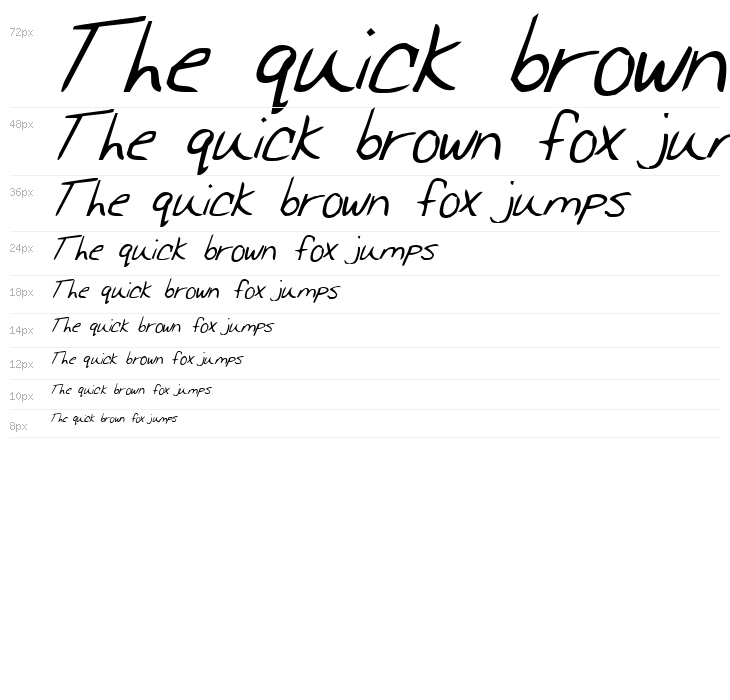 72px The quick brown
48px The quick brown fox jur
36px The quick brown fox jumps
24px The quick brown fox jumps
18px The quick brown fox jumps
14px The quick brown fox jumps
12px The quick brown fox jumps
10px The quick brown fox jumps
8px The quick brown fox jumps